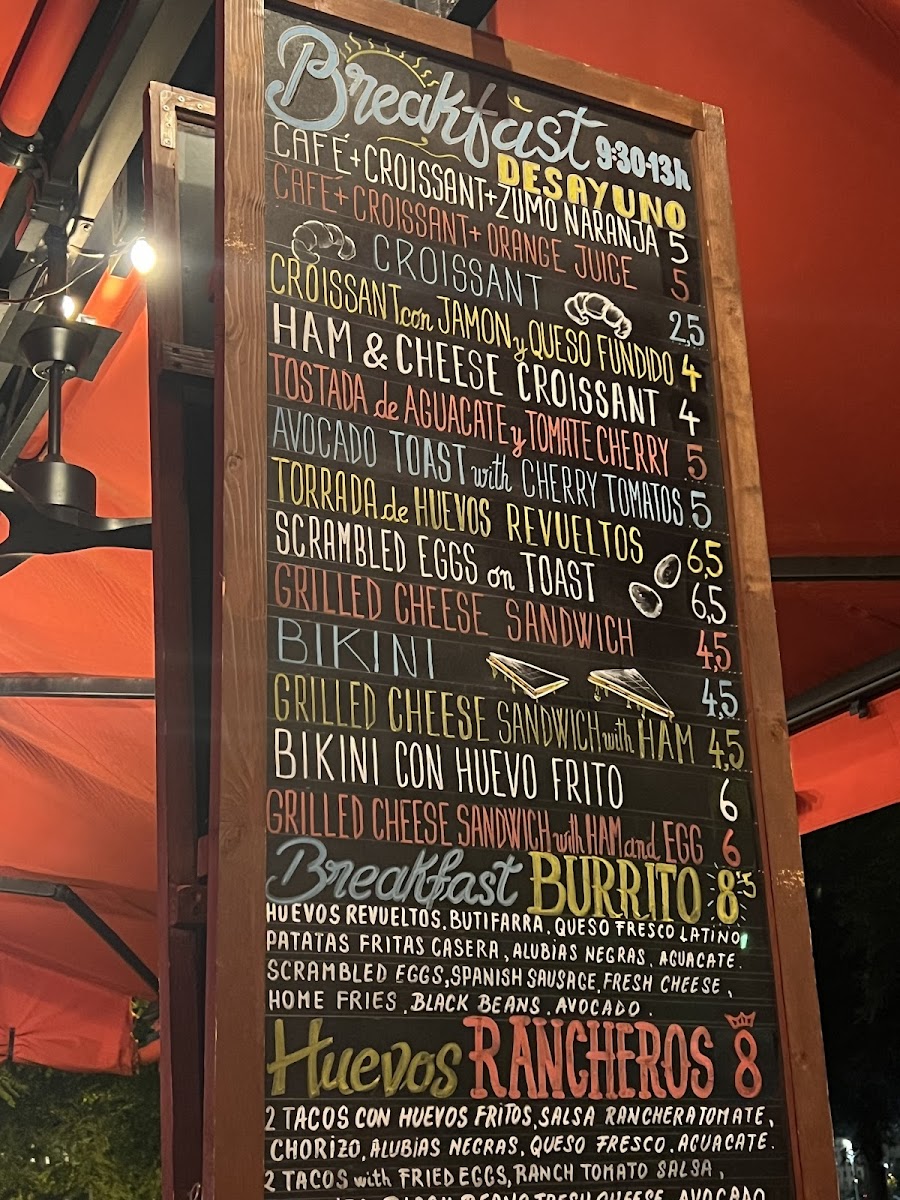 Breakfast 9:30-13h
DESAYUNO
CAFÉ+CROISSANT+ZUMO NARANJA 5
CAFÉ+CROISSANT+ORANGE JUICE 5
CROISSANT 2,5
CROISSANT con JAMON y QUESO FUNDIDO 4
HAM & CHEESE CROISSANT 4
TOSTADA de AGUACATE y TOMATE CHERRY 5
AVOCADO TOAST with CHERRY TOMATOS 5
TORRADA de HUEVOS REVUELTOS 6,5
SCRAMBLED EGGS on TOAST 6,5
GRILLED CHEESE SANDWICH 4,5
BIKINI 4,5
GRILLED CHEESE SANDWICH with HAM 4,5
BIKINI CON HUEVO FRITO 6
GRILLED CHEESE SANDWICH with HAM and EGG 6
Breakfast BURRITO 8'5
HUEVOS REVUELTOS, BUTIFARRA, QUESO FRESCO LATINO,
PATATAS FRITAS CASERA, ALUBIAS NEGRAS, AGUACATE.
SCRAMBLED EGGS, SPANISH SAUSAGE, FRESH CHEESE,
HOME FRIES, BLACK BEANS, AVOCADO.
Huevos RANCHEROS 8
2 TACOS CON HUEVOS FRITOS, SALSA RANCHERA TOMATE,
CHORIZO, ALUBIAS NEGRAS, QUESO FRESCO, AGUACATE.
2 TACOS with FRIED EGGS, RANCH TOMATO SALSA,
BLACK BEANS, FRESH CHEESE, AVOCADO